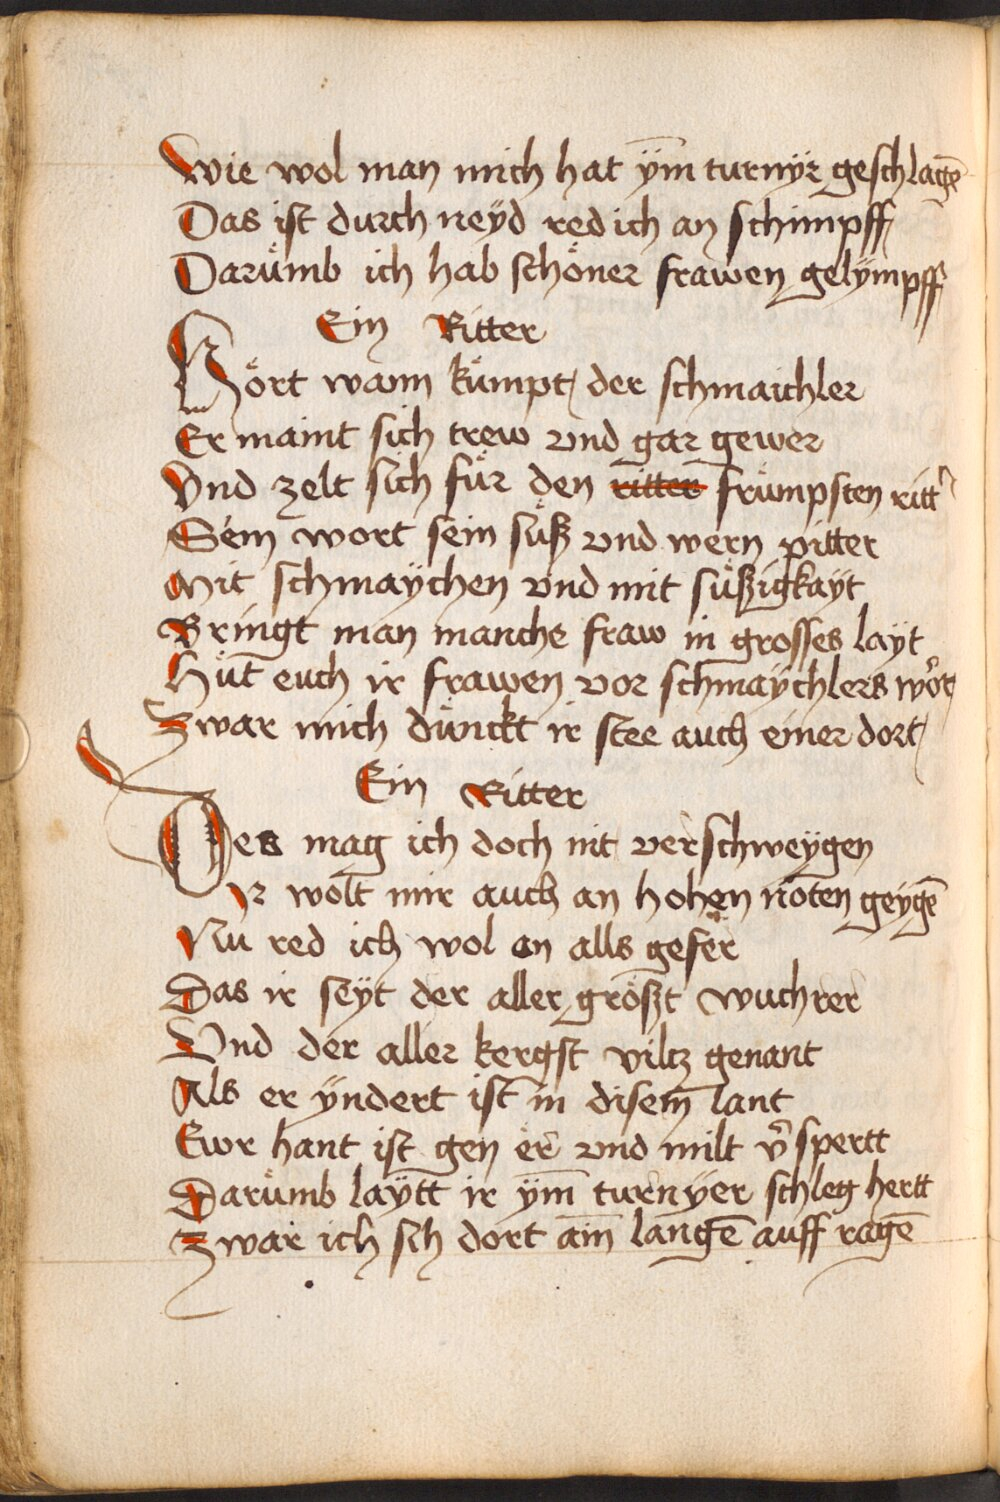 Wie wol man mich hat ym̄ turnyr geschlagē
Das ist durch neyd red ich an schimpff
Darůmb ich hab schöner frawen gelympff
Ein Ritter
Hört wann kůmpt der schmaichler
Er maint sich trew vnd gar gewer
Vnd zelt sich für den ritter frůmpsten ritt'
Sem wort sein süß vnd wern pitter
Mit schmaychen vnd mit süßigkayt
Bringt man manche fraw in grosses layt
Hüt euch ir frawen vor schmaychlers wort
Zwar mich dünckt ir stee auch einer dort
Ein Ritter
Des mag ich doch nit verschweygen
Ir wolt mir auch an hohen nöten geygē
Nu red ich wol on alls gefer
Das ir seyt der aller größt wuchrer
Vnd der aller kergst viltz genant
Als er yndert ist in disem̄ lant
Ewr hant ist gen er vnd milt v̄spertt
Darůmb laytt ir ym̄ turnyer schleg hertt
Zwar ich sih dort am̄ langē auff ragē